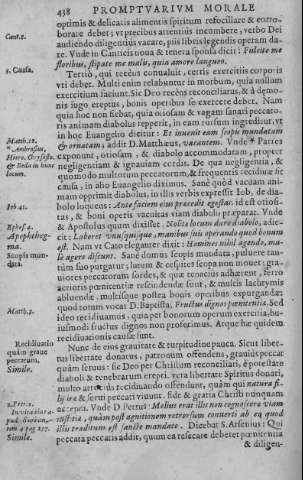 438 PROMPTVARIVM MORALE
optimis & delicatis alimentis spiritum refocillare & corro-
borare debet; vt precibus attentius incumbere, verbo Dei
audiendo diligentiùs vacare, piis libris legendis operam da-
re. Vnde in Canticis noua & tenera sponsa dicit: Fulcite me
floribus, stipate me malis, quia amore langueo.
Cant.2.
3. Causa.
Tertiò, qui recèns conualuit, certis exercitiis corporis
vti debet. Multi enim relabuntur in morbum, quia nullum
exercitium faciunt. Sic Deo recèns reconciliatus, & à demo-
nis iugo ereptus, bonis operibus se exercere debet. Nam
quia hoc non fiebat, quia otiosam & vagam
ris animam diabolus repperit, in eam rursum ingreditur, vt
in hoc Euangelio dicitur: Et inuenit eam scopis mundatam
& ornatam; addit D. Matthæus, vacantem. Vnde Patres
exponunt, otiosam, & diabolo accommodatam, propter
negligentiam & ignauiam cordis. De qua negligentia, &
quomodo multorum peccatorum, & frequentis recidiuæ sit
causa, in alio Euangelio diximus. Sanè quòd vacuam ani-
mam opprimit diabolus, in illis verbis expressit Iob, de dia-
bolo loquens: Ante faciem eius præcedit egestas. id est otiosi-
tas, & boni operis vacuitas viam diabolo præparat. Vnde
& Apostolus quum dixisset. Nolite locum dare diabolo, adie-
cit: Laboret vnusquisque, manibus suis operando quod bonum
est. Nam vt Cato eleganter dixit: Homines nihil agendo, ma-
lè agere discunt. Sanè domus scopis mundata, puluere tan-
tùm suo purgatur; lutum & cespites scopa non mouet: gra-
uiores peccatorum sordes, & quæ tenaciùs adhærent, ferro
acrioris pœnitentiæ rescindendæ sunt, & multis lachrymis
abluendæ, multisque postea bonis operibus expurgandæ:
quod totum vocat D. Baptista, Fructus dignos pœnitentiæ. Sed
ideo recidiuamus, quia per bonorum operum exercitia, hu-
iusmodi fructus dignos non proferimus. Atque hæ quidem
recidiuationis causæ sunt.
Matth.12.
Ambrosius,
Hiero. Chrysosto.
& Beda in hunc
locum.
Iob 41.
Ephes.4.
Apophtheg-
ma.
Scopis mun-
data.
Matth.3.
Recidiuatio
quàm graue
peccatum.
Simile.
Nunc de eius grauitate & turpitudine pauca. Sicut liber-
tus libertate donatus, patronum offendens, grauiùs peccat
quàm seruus: sic Deo per Christum reconciliari, è potestate
diaboli & tenebrarum eripi, vera libertate Spiritus donari,
multo magis id recidiuando offendunt, quàm qui natura fi-
lij iræ & serui peccati viuunt, fide & gratia Christi nunquam
accepta. Vnde D. Petrus: Melius erat illis non cognoscere viam
iustitiæ, quàm post agnitionem retrorsum conuerti ab eo quod
illis traditum est sancto mandato. Dicebat S. Arsenius: Qui
peccata peccatis addit, quum ea resecare deberet pœnitentia
& diligen-
2.Petr.2.
Simile.